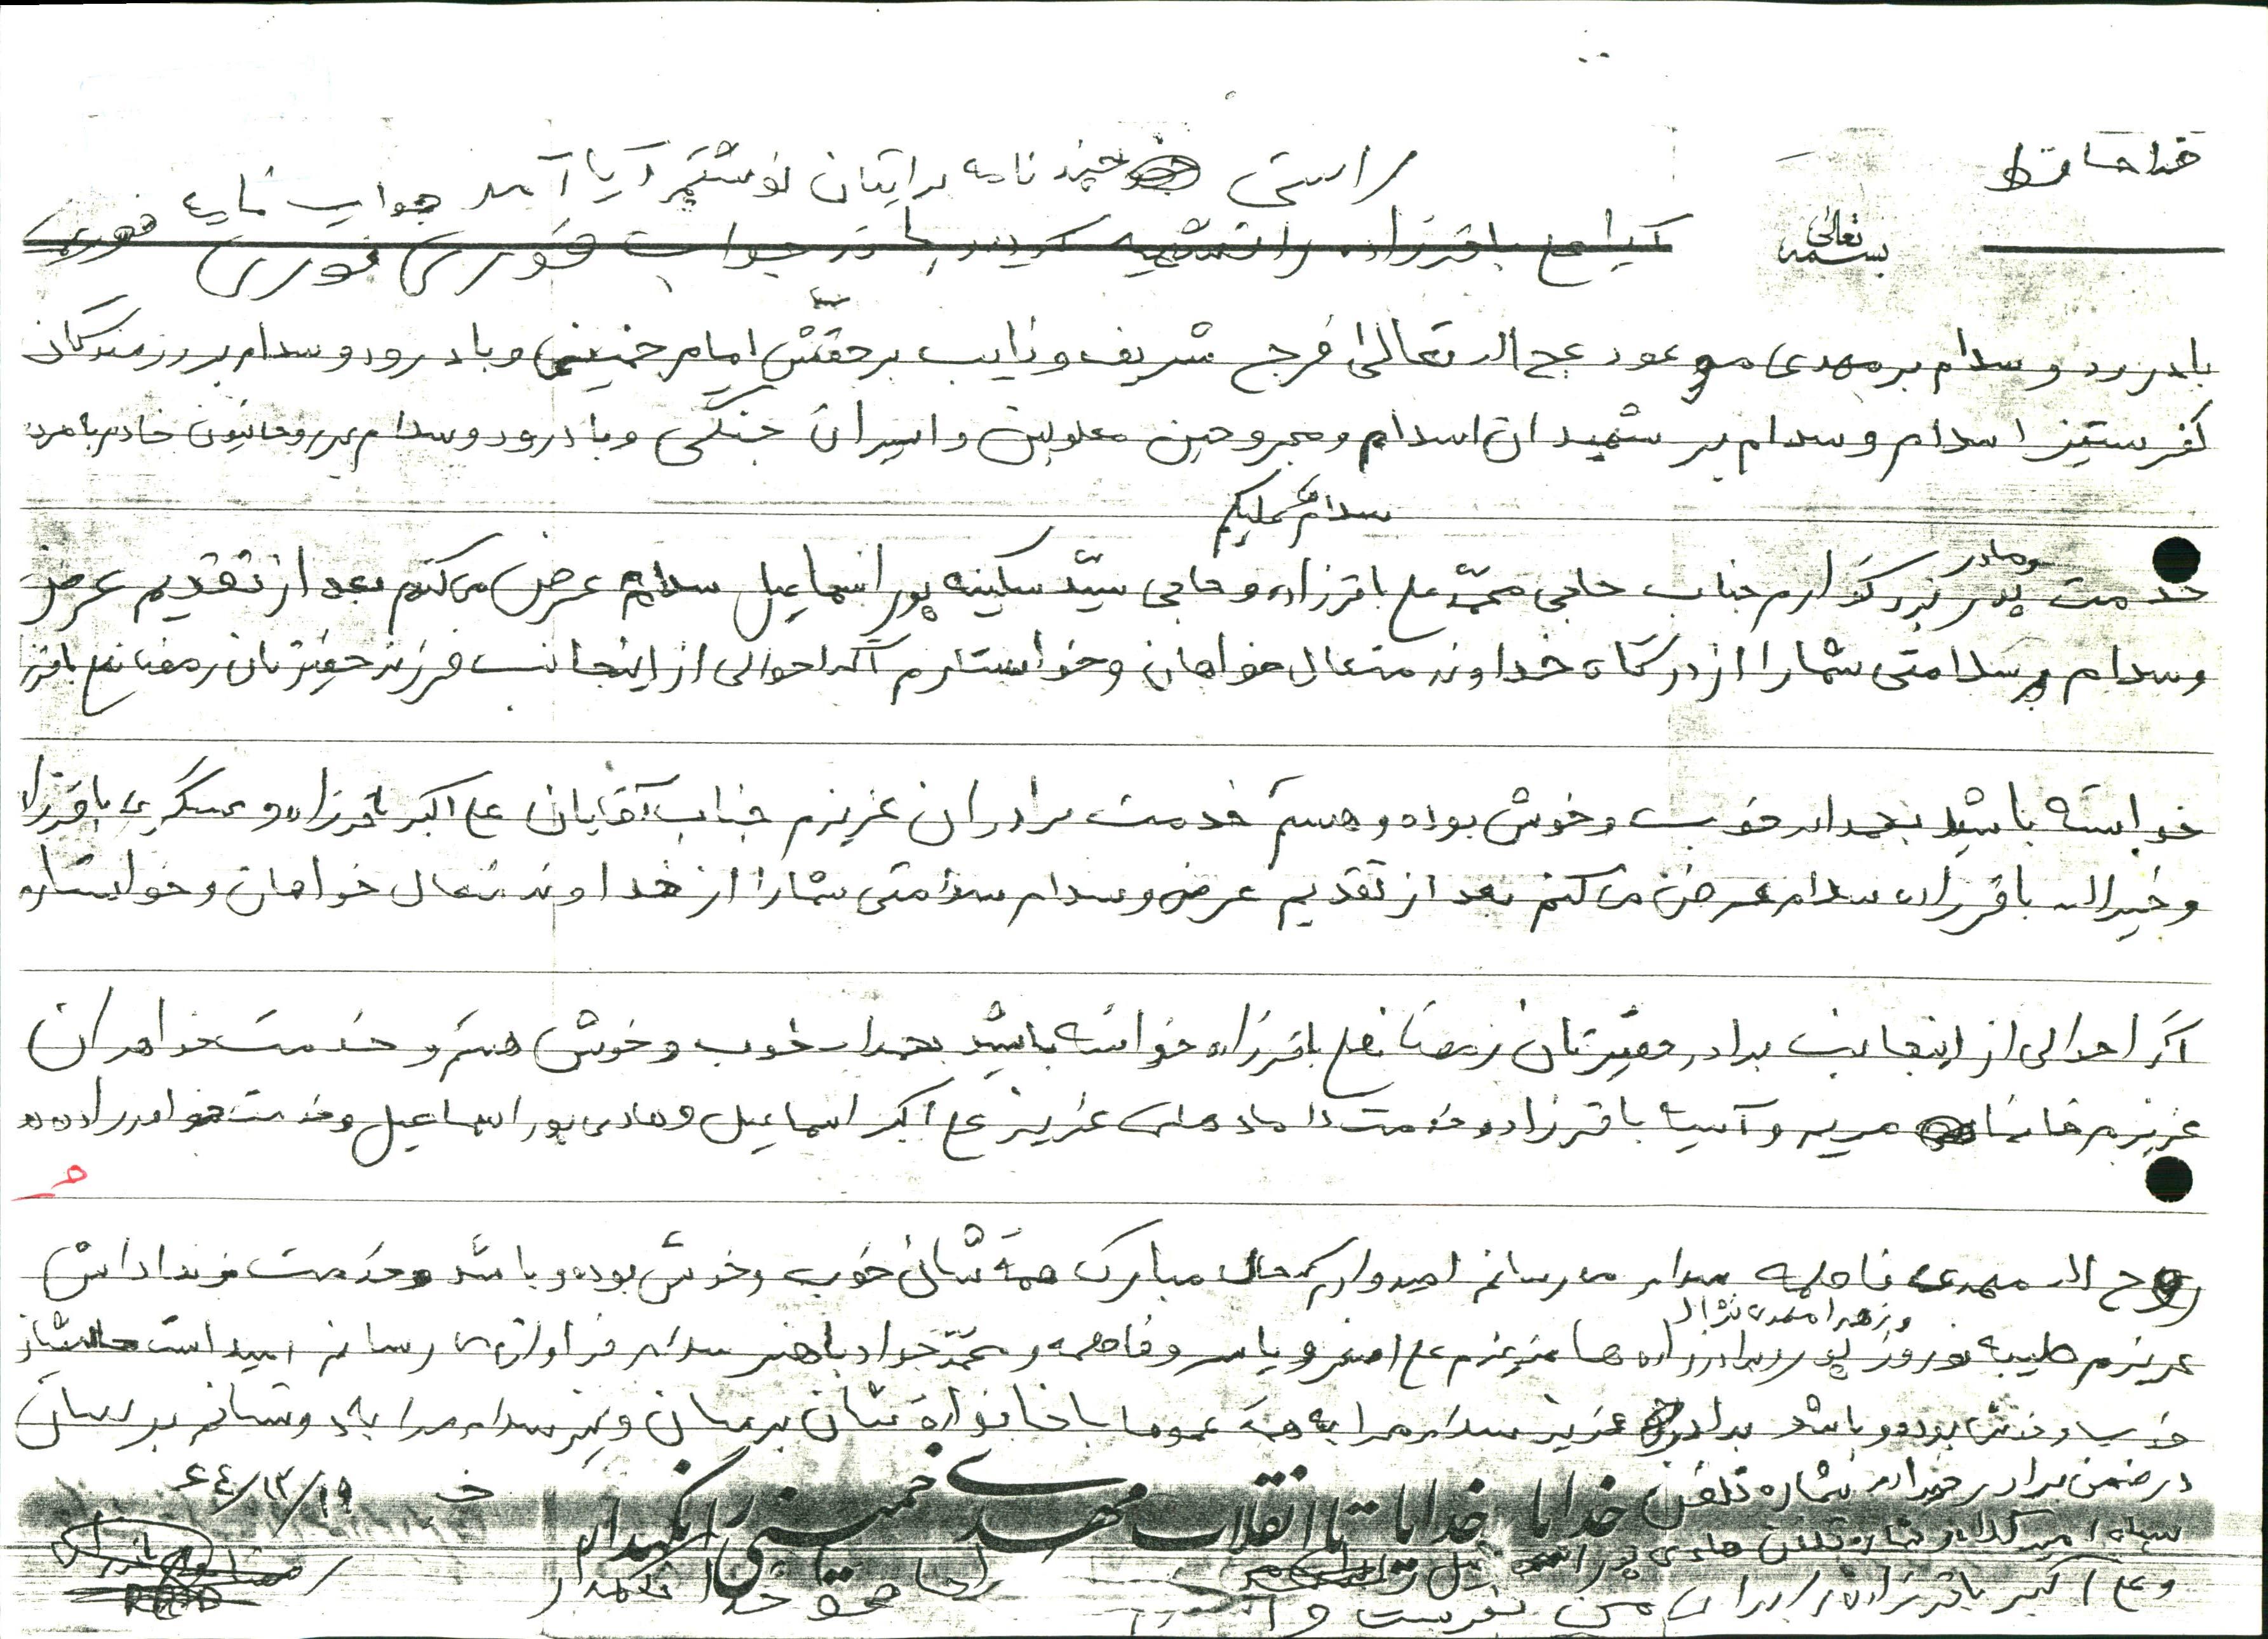 خداحافظ
راستی چند نامه برایتان نوشتم آیا آمد جواب نمایید فوری
بسمه تعالی
آیا علی باقرزاده را جواب فوری فوری
بادرود و سلام بر مهدی موعود عج الله تعالی فرج شریف و نایب برحقش امام خمینی و با درود و سلام بر رزمندگان
کفرستیز اسلام و سلام بر شهیدان اسلام و مجروحین معلولین و اسیران جنگی و با درود و سلام بر روحانیون
سلام علیکم
خدمت پدر و مادر بزرگوارم جناب حاجی محمد علی باقرزاده و حاجی سید سکینه پور اسماعیل سلام عرض می کنم بعد از تقدیم عرض
و سلام سلامتی شما را از درگاه خداوند متعال خواهان و خواستارم اگر احوالی از اینجانب فرزند حقیرتان رمضانعلی باقرزا
خواسته باشید بحمدالله خوب و خوش بوده و هستم خدمت برادران عزیزم جناب آقایان علی اکبر باقرزاده و عسگری باقرزا
و خیرالله باقرزاده سلام عرض می کنم بعد از تقدیم عرض و سلام سلامتی شما را از خداوند متعال خواهان و خواستارم
اگر احوالی از اینجانب برادر حقیرتان رمضانعلی باقرزاده خواسته باشید بحمدالله خوب و خوش هستم و خدمت خواهران
عزیزم خانمها مریم و آسیا باقرزاده و خدمت دامادهای عزیز علی اکبر اسماعیل و هادی پور اسماعیل و خدمت خواهرزاده ها
روح الله مهدی فاطمه سلام می رسانم امیدوارم که حال مبارک همه شان خوب و خوش بوده و باشد و خدمت
عزیزم طیبه نوروز پور و زهرا محمدی نژاد برادرزاده ها عزیزم علی اصغر و یاسر و فاطمه و محمد جواد سلام فراوان می رسانم امید است
خوب و خوش بوده و باشد برادر عزیز سلام مرا به همه عموما با خانواده شان برسان و نیز سلام مرا به دوستانم برسان
در ضمن برادر خیرالله شماره تلفن
خدایا خدایا تا انقلاب مهدی خمینی را نگهدار
٦٤/١٢/١٩
شماره تلفن هادی پور اسماعیل
و علی اکبر باقرزاده را برای من بفرست
خدا نگهدار